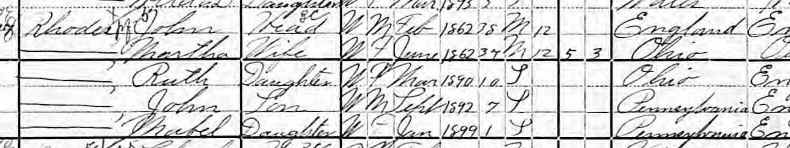 Daughter W F Mar 1895 Wales
Rhodes John Head W M Feb 1862 38 M 12 England En
Martha Wife W F June 1862 37 M 12 5 3 Ohio
Ruth Daughter W F Mar 1890 10 S Ohio En
John Son W M Sept 1892 7 S Pennsylvania En
Mabel Daughter W F Jan 1899 1 S Pennsylvania En